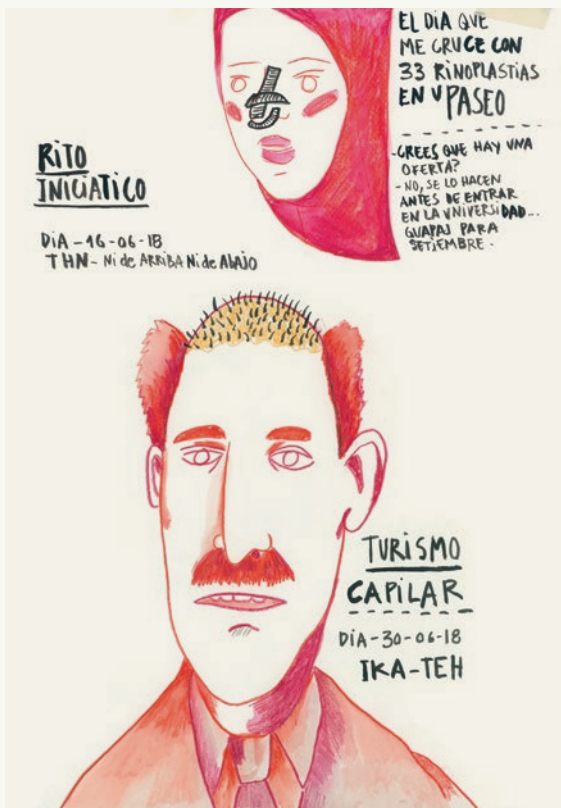 EL DIA QUE
ME CRUCE CON
33 RINOPLASTIAS
EN V PASEO
-CREES QUE HAY UNA
OFERTA?
- NO, SE LO HACEN
ANTES DE ENTRAR
EN LA UNIVERSIDAD...
GUAPAS PARA
SETIEMBRE.
RITO
INICIATICO
DIA-16-06-18
THN- Ni de ARRIBA Ni de ABAJO
TURISMO
CAPILAR
DIA-30-06-18
IKA-TEH